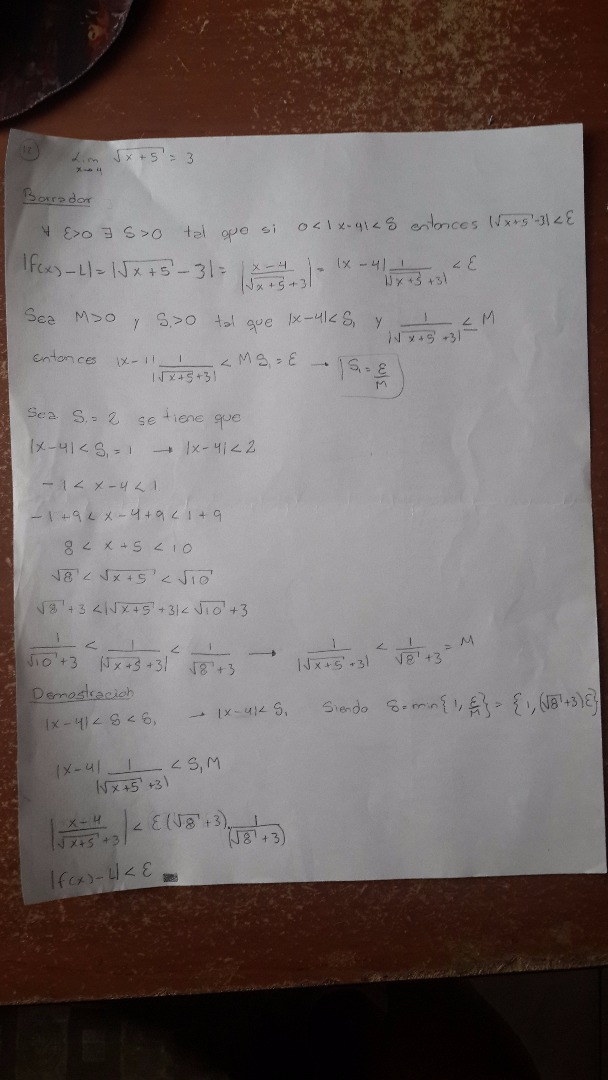 12
Lim x→4 √(x+5) = 3
Borrador
∀ ε>0 ∃ δ>0 tal que si 0<|x-4|<δ entonces |√(x+5)-3|<ε
|f(x)-L| = |√(x+5) - 3| = |(x-4)/(√(x+5)+3)| = |x-4| 1/|√(x+5)+3| < ε
Sea M>0 y δ₁>0 tal que |x-4|<δ₁ y 1/|√(x+5)+3| ≤ M
entonces |x-1| 1/|√(x+5)+3| < Mδ₁ = ε → δ₁ = ε/M
Sea δ₁ = 2 se tiene que
|x-4| < δ₁ = 1 → |x-4| < 2
-1 < x-4 < 1
-1+9 < x-4+9 < 1+9
8 < x+5 < 10
√8 < √(x+5) < √10
√8+3 < |√(x+5)+3| < √10+3
1/(√10+3) < 1/|√(x+5)+3| < 1/(√8+3) → 1/|√(x+5)+3| < 1/(√8+3) = M
Demostracion
|x-4| < δ < δ₁ → |x-4| < δ₁ Siendo δ = min{1, ε/M} = {1, (√8+3)ε}
|x-4| 1/|√(x+5)+3| < δ₁M
|(x-4)/(√(x+5)+3)| < ε(√8+3) · 1/(√8+3)
|f(x)-L| < ε ■